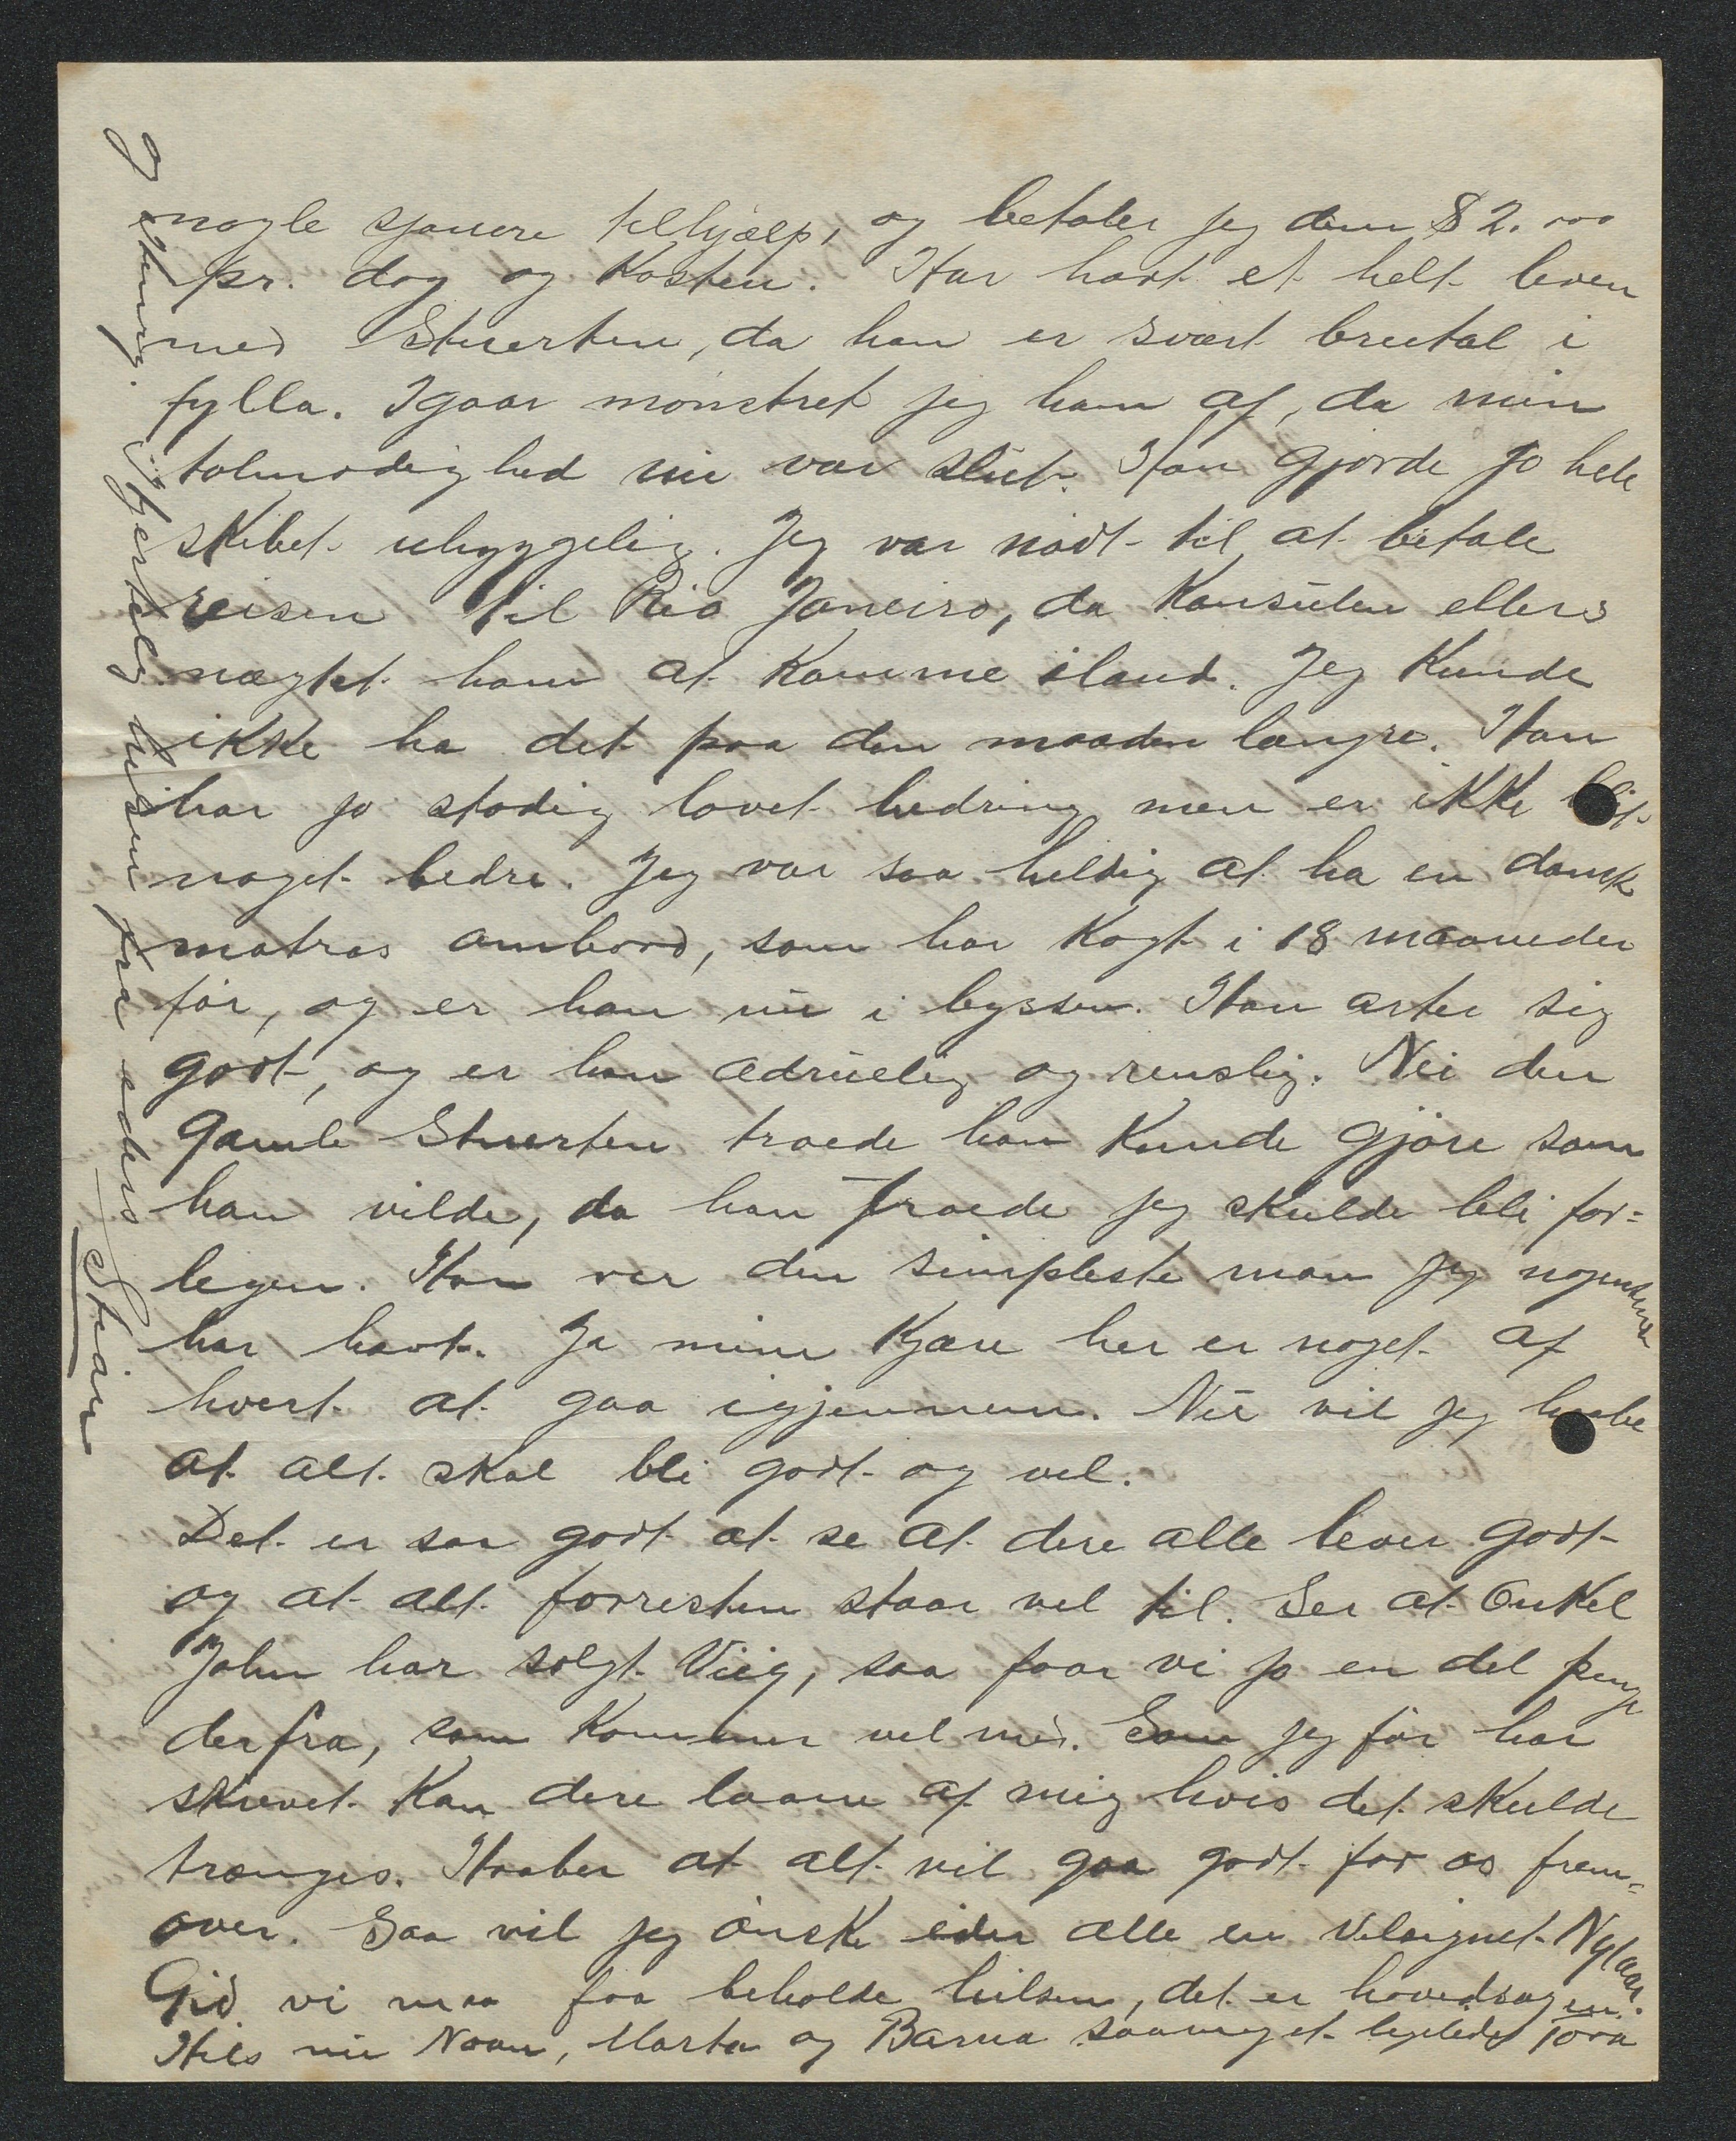 nogle sjauere tilhjælp, og betaler jeg dem $ 2.000
pr. dag og Kosten. Har havt et helt leven
med Stuerten, da han er svært brutal i
fylla. Igaar mönstret jeg ham af, da min
tolmodighed nu var slut. Han gjorde jo hele
skibet uhyggelig. Jeg var nödt til at betale
reisen til Rio Janeiro, da Konsulen ellers
nægtet ham at Komme iland. Jeg Kunde
ikke ha det paa den maaden længre. Han
har jo stadig lovet bedring men er ikke blit
noget bedre. Jeg var saa heldig at ha en dansk
matros ombord, som har Kogt i 18 maaneder
för, og er han nu i byssen. Han arter sig
godt, og er han ædruelig og renslig. Nei den
gamle Stuerten troede han Kunde gjöre som
han vilde, da han troede jeg skulde bli for=
legen. Han var den simpleste man jeg nogensinde
har havt. Ja mine Kjære her er noget af
hvert at gaa igjennem. Nu vil jeg haabe
at alt skal bli godt og vel.
Det er saa godt at se at dere alle lever godt
og at alt forresten staar vel til. Ser at Onkel
John har solgt Viig, saa faar vi jo en del penge
derfra, som Kommer vel med. Som jeg för har
skrevet Kan dere laane af mig hvis det skulde
trænges. Haaber at alt vil gaa godt for os frem=
over. Saa vil jeg önske eder alle en velsignet Nytaar.
Gid vi maa faa beholde helsen, det er hovedsagen.
Hils nu Naan, Marta og Barna saameget ligeledes Tora
og Henry. Hjertelig hilsen fra eders Stian